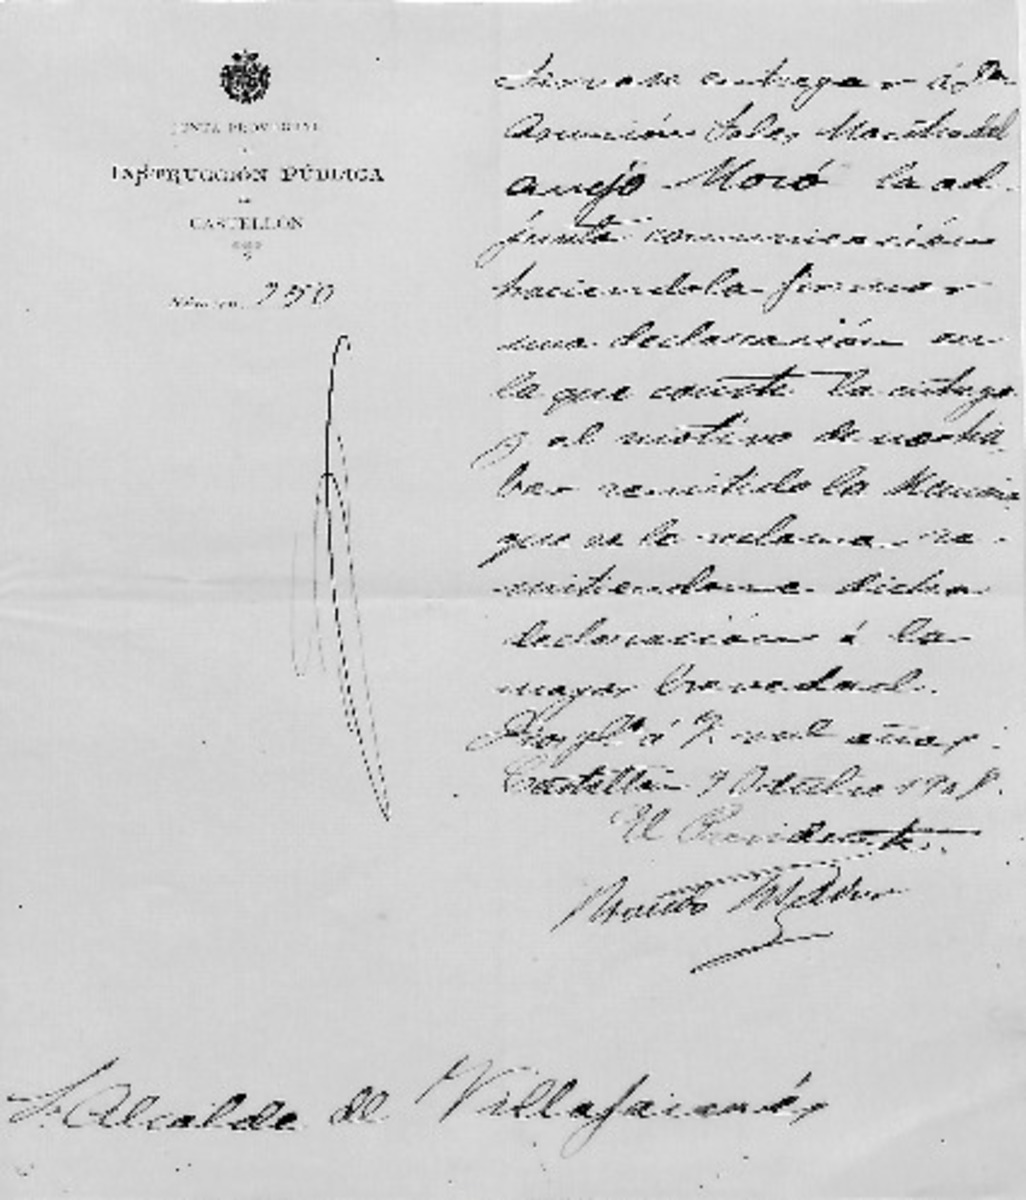 JUNTA PROVINCIAL
DE
INSTRUCCIÓN PÚBLICA
DE
CASTELLÓN
Número 250
Sirvase entregar á Dª
Asunción Soler Maestra del
anejo Moró la ad-
junta comunicación
haciendola firmar
una declaración en
la que conste la entrega
y el motivo de no ha
ber remitido la Memoria
que se le reclama re-
mitiendome dicha
declaración á la
mayor brevedad.
Dios gue á V. mcl años.
Castellón 9 Octubre 1908.
El Presidente.
S. Alcalde de Villafamés